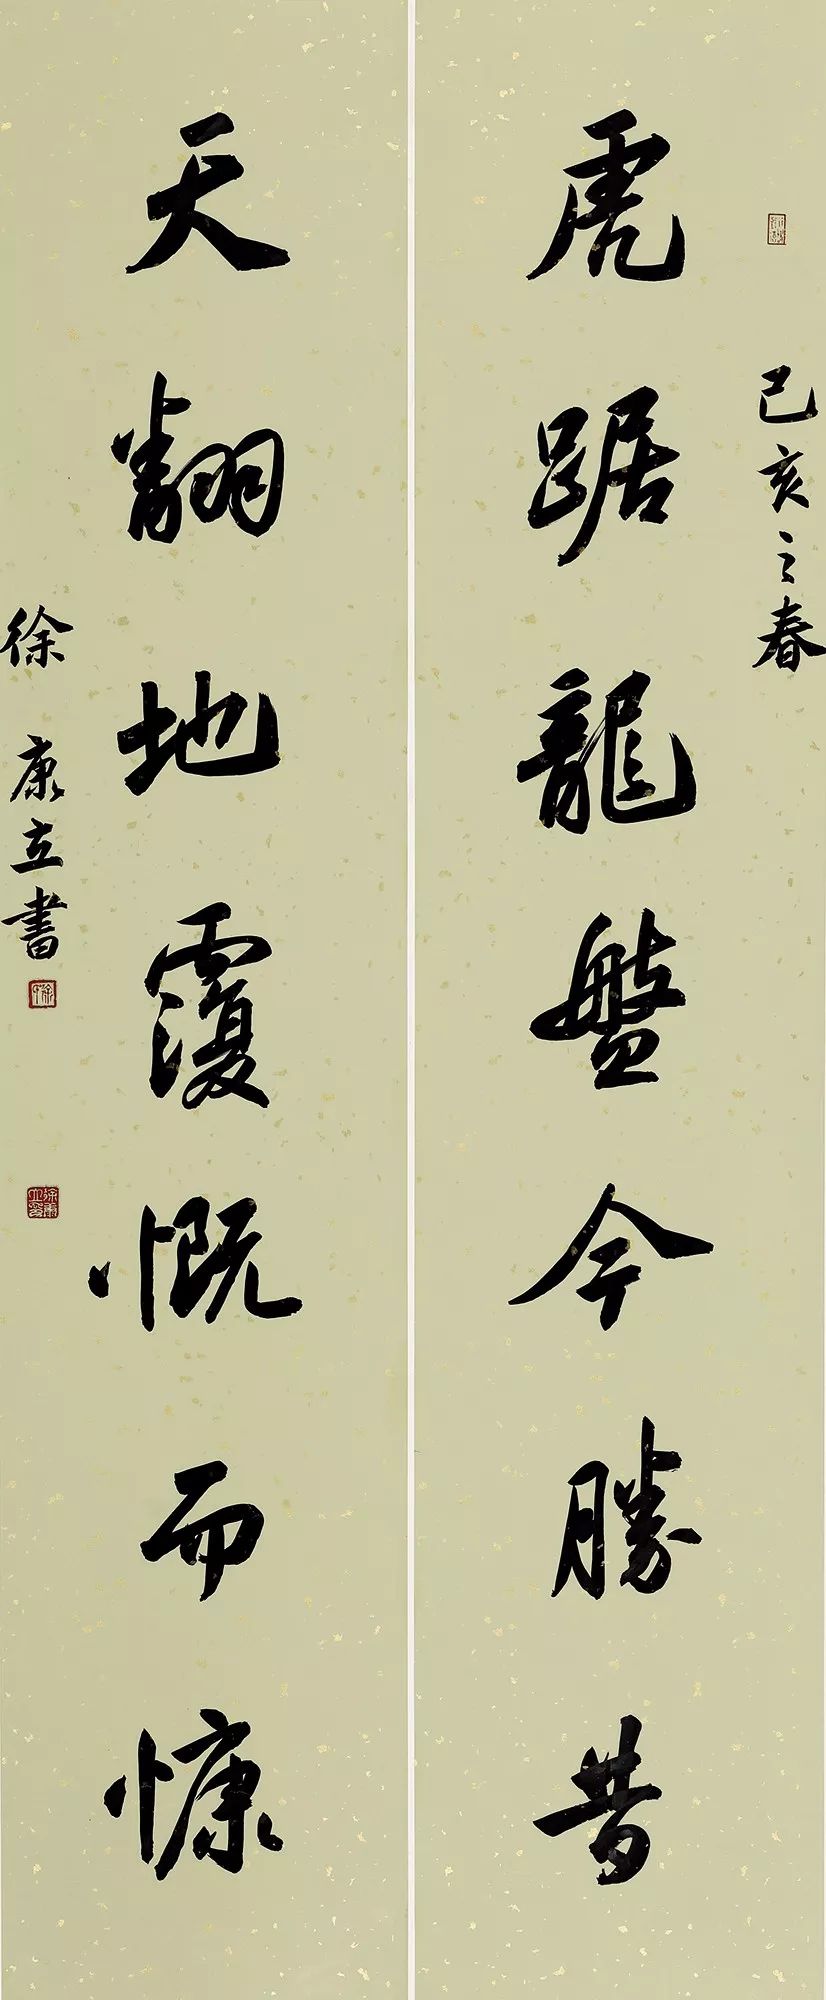 己亥之春
虎踞龍盤今勝昔
天翻地覆慨而慷
徐康立書